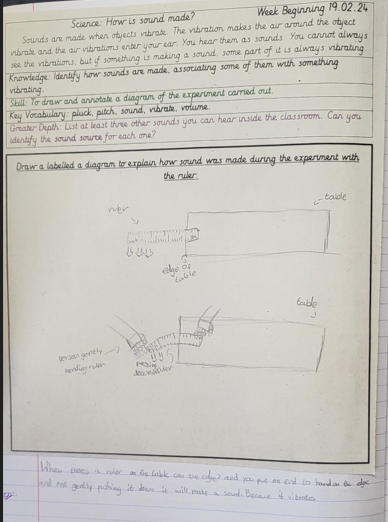 Week Beginning 19.02.24
Science: How is sound made?
Sounds are made when objects vibrate. The vibration makes the air around the object
vibrate and the air vibrations enter your ear. You hear them as sounds. You cannot always
see the vibrations, but if something is making a sound, some part of it is always vibrating.
Knowledge: Identify how sounds are made, associating some of them with something
vibrating.
Skill: To draw and annotate a diagram of the experiment carried out.
Key Vocabulary: pluck, pitch, sound, vibrate, volume.
Greater Depth: List at least three other sounds you can hear inside the classroom. Can you
identify the sound source for each one?
Draw a labelled a diagram to explain how sound was made during the experiment with
the ruler.
ruler
table
edge of
table
table
person gently
bending ruler
When a ruler on the table the edge? and you put one end to hand on the edge
and one gently putting it down it will make a sound. Because it vibrates